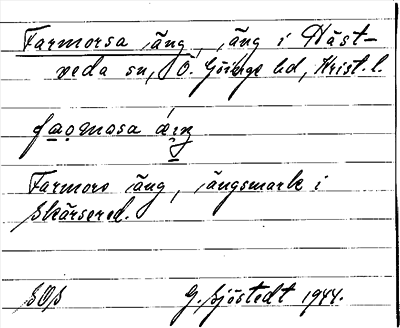 Farmorsa äng, äng i Häst-
veda sn, Ö. Göinge hd, Krist. l.
faomosa äng
Farmors äng, ängsmark i
Skärsered.
SOS G. Sjöstedt 1944.